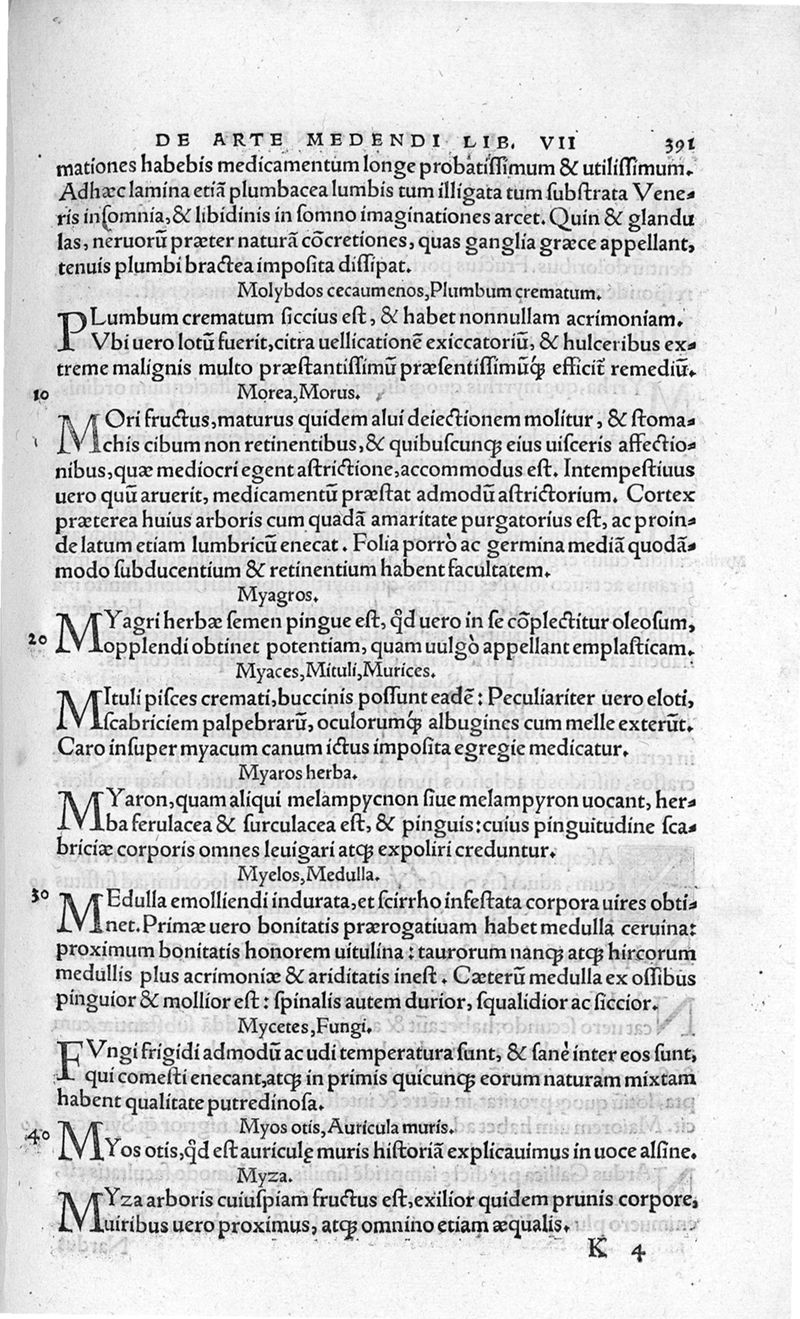 DE ARTE MEDENDI LIB. VII 391
mationes habebis medicamentum longe probatissimum & utilissimum.
Adhæc lamina etiã plumbacea lumbis tum illigata tum substrata Vene-
ris insomnia, & libidinis in somno imaginationes arcet. Quin & glandu
las, neruorũ præter naturã cõcretiones, quas ganglia græce appellant,
tenuis plumbi bractea imposita dissipat.
Molybdos cecaumenos, Plumbum crematum.
PLumbum crematum siccius est, & habet nonnullam acrimoniam.
Vbi uero lotũ fuerit, citra uellicationẽ exiccatoriũ, & hulceribus ex-
treme malignis multo præstantissimũ præsentissimũq; efficit remediũ.
10 Morea, Morus.
MOri fructus, maturus quidem alui deiectionem molitur, & stoma-
chis cibum non retinentibus, & quibuscunq; eius uisceris affectio-
nibus, quæ mediocri egent astrictione, accommodus est. Intempestiuus
uero quũ aruerit, medicamentũ præstat admodũ astrictorium. Cortex
præterea huius arboris cum quadã amaritate purgatorius est, ac proin-
de latum etiam lumbricũ enecat. Folia porrò ac germina mediã quodã-
modo subducentium & retinentium habent facultatem.
Myagros.
MYagri herbæ semen pingue est, qđ uero in se cõplectitur oleosum,
20 opplendi obtinet potentiam, quam uulgò appellant emplasticam.
Myaces, Mituli, Murices.
MItuli pisces cremati, buccinis possunt eadẽ: Peculiariter uero eloti,
scabriciem palpebrarũ, oculorumq́; albugines cum melle exterũt.
Caro insuper myacum canum ictus imposita egregie medicatur.
Myaros herba.
MYaron, quam aliqui melampycnon siue melampyron uocant, her-
ba ferulacea & surculacea est, & pinguis: cuius pinguitudine sca-
briciæ corporis omnes leuigari atq; expoliri creduntur.
Myelos, Medulla.
30 MEdulla emolliendi indurata, et scirrho infestata corpora uires obti-
net. Primæ uero bonitatis prærogatiuam habet medulla ceruina:
proximum bonitatis honorem uitulina: taurorum nanq; atq; hircorum
medullis plus acrimoniæ & ariditatis inest. Cæterũ medulla ex ossibus
pinguior & mollior est: spinalis autem durior, squalidior ac siccior.
Mycetes, Fungi.
FVngi frigidi admodũ ac udi temperatura sunt, & sanè inter eos sunt,
qui comesti enecant, atq; in primis quicunq; eorum naturam mixtam
habent qualitate putredinosa.
Myos otis, Auricula muris.
40 MYos otis, qđ est auriculę muris historiã explicauimus in uoce alsine.
Myza.
MYza arboris cuiuspiam fructus est, exilior quidem prunis corpore,
uiribus uero proximus, atq; omnino etiam æqualis.
K 4